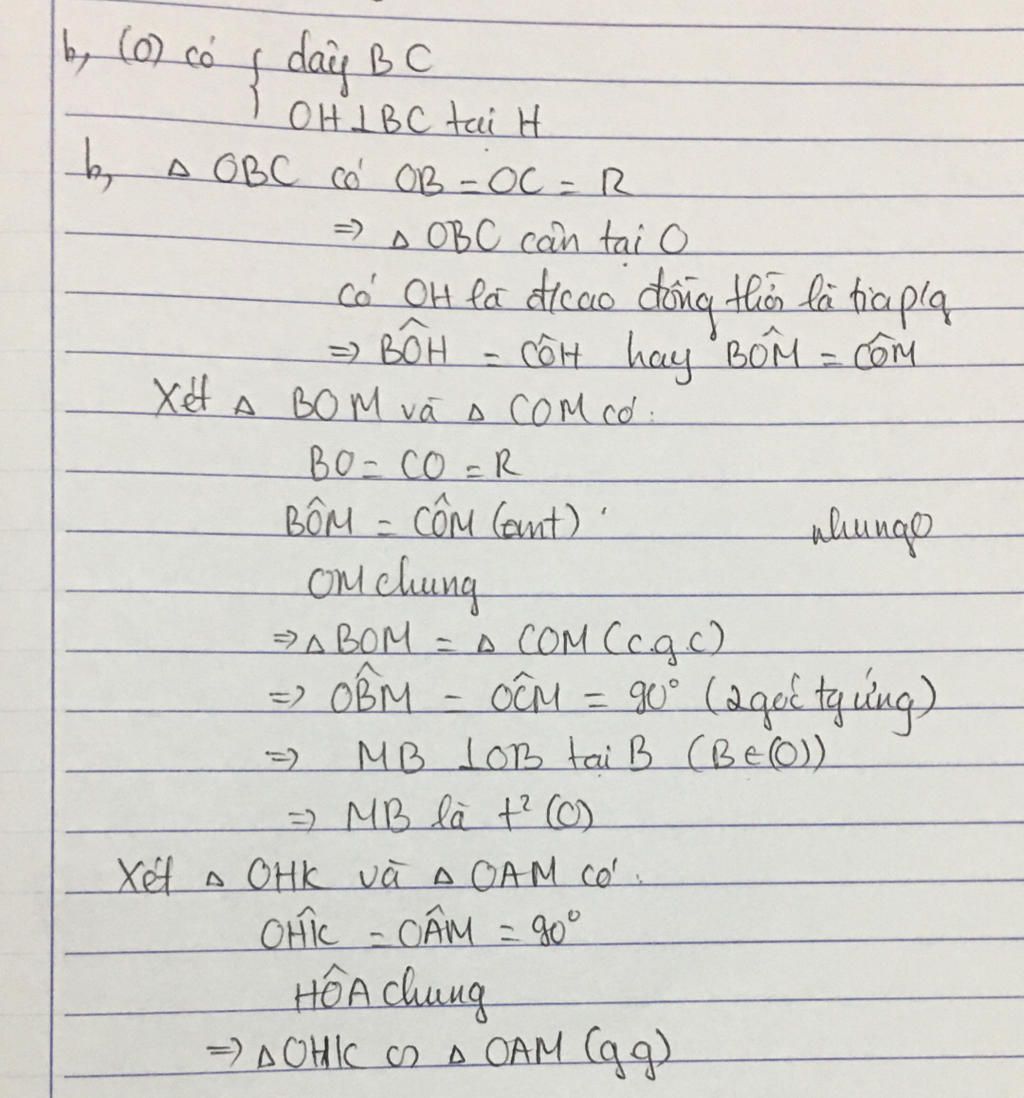 b, (O) có { dây BC
OH⊥BC tại H
b, △ OBC có OB = OC = R
⇒ △ OBC cân tại O
có OH là đ/cao đồng thời là tia p/g
⇒ BÔH = CÔH hay BÔM = CÔM
Xét △ BOM và △ COM có:
BO = CO = R
BÔM = CÔM (cmt)
OM chung
⇒ △ BOM = △ COM (c.g.c)
⇒ OB̂M = OĈM = 90° (2 góc tg ứng)
⇒ MB ⊥ OB tại B (B∈(O))
⇒ MB là t² (O)
Xét △ OHK và △ OAM có:
OĤK = OÂM = 90°
HÔA chung
⇒ △ OHK ∽ △ OAM (g g)